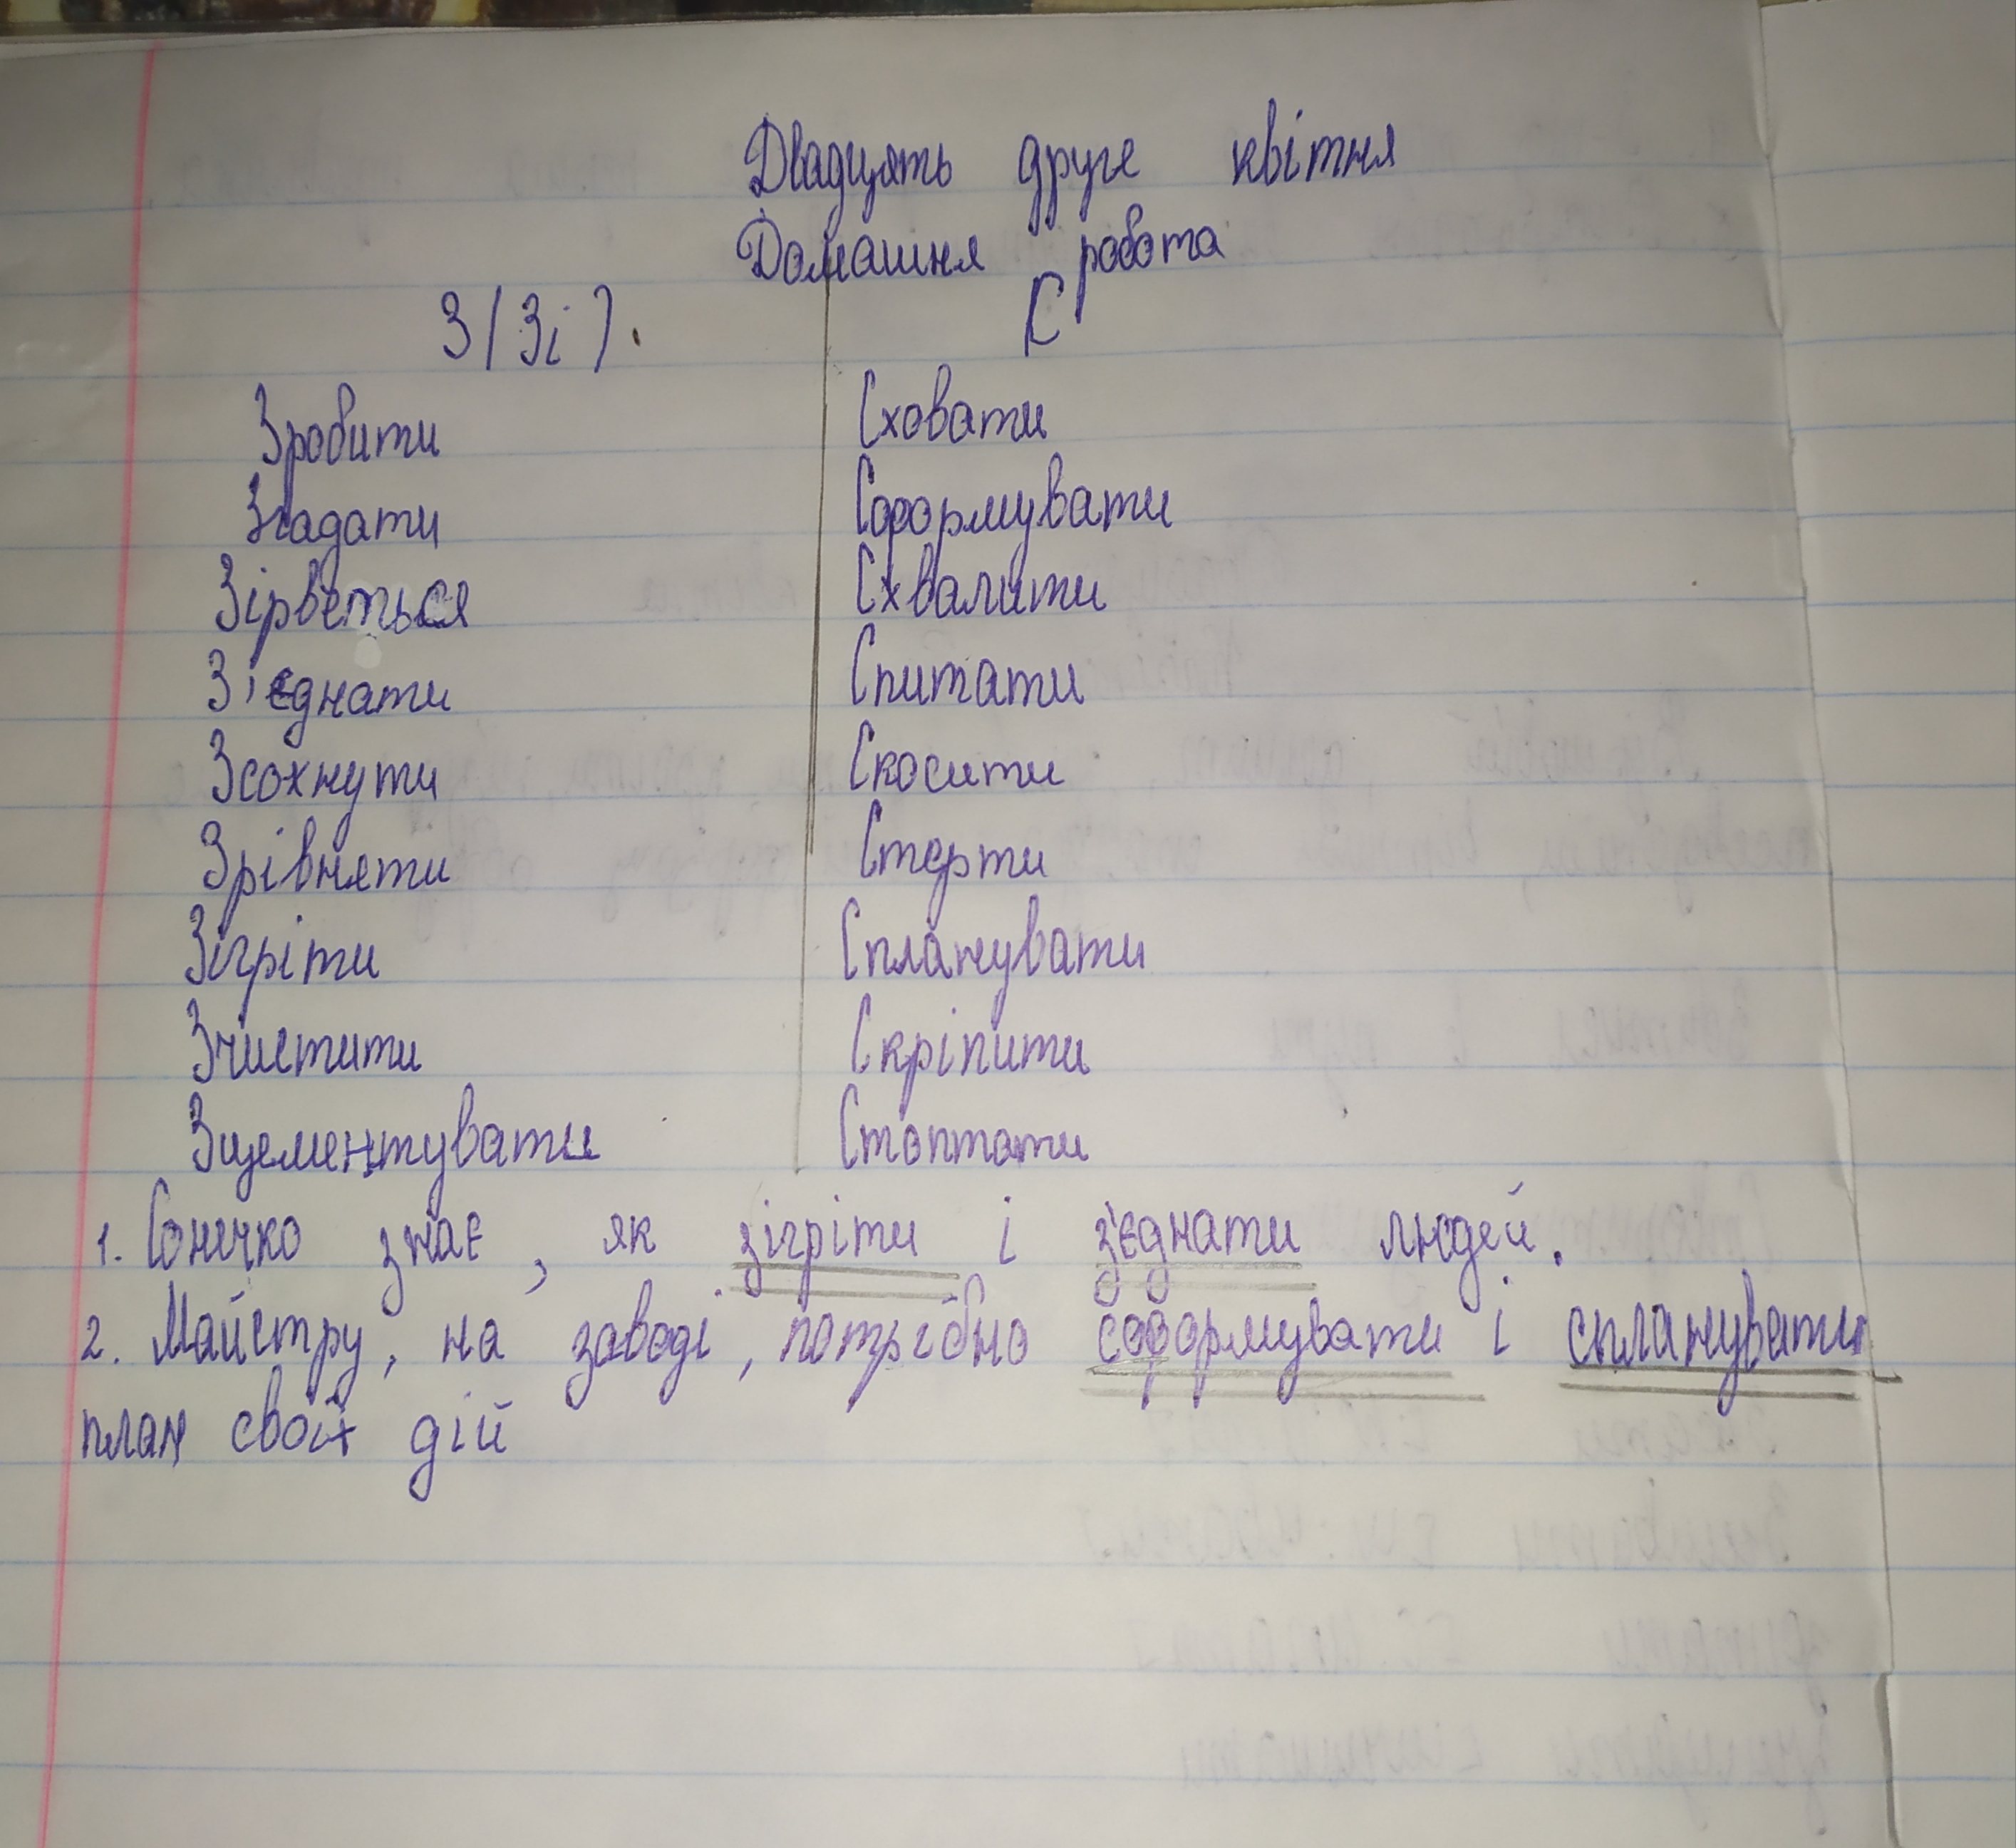 Двадцять друге квітня
Домашня робота
З(Зі). С
Зробити Сховати
Згадати Сформувати
Зірветься Схвалити
З'єднати Спитати
Зсохнути Скосити
Зрівняти Стерти
Зігріти Спланувати
Зчистити Скріпити
Зцементувати Стоптати
1. Сонечко знає, як зігріти і з'єднати людей.
2. Майстру, на заводі, потрібно сформувати і спланувати
план своїх дій